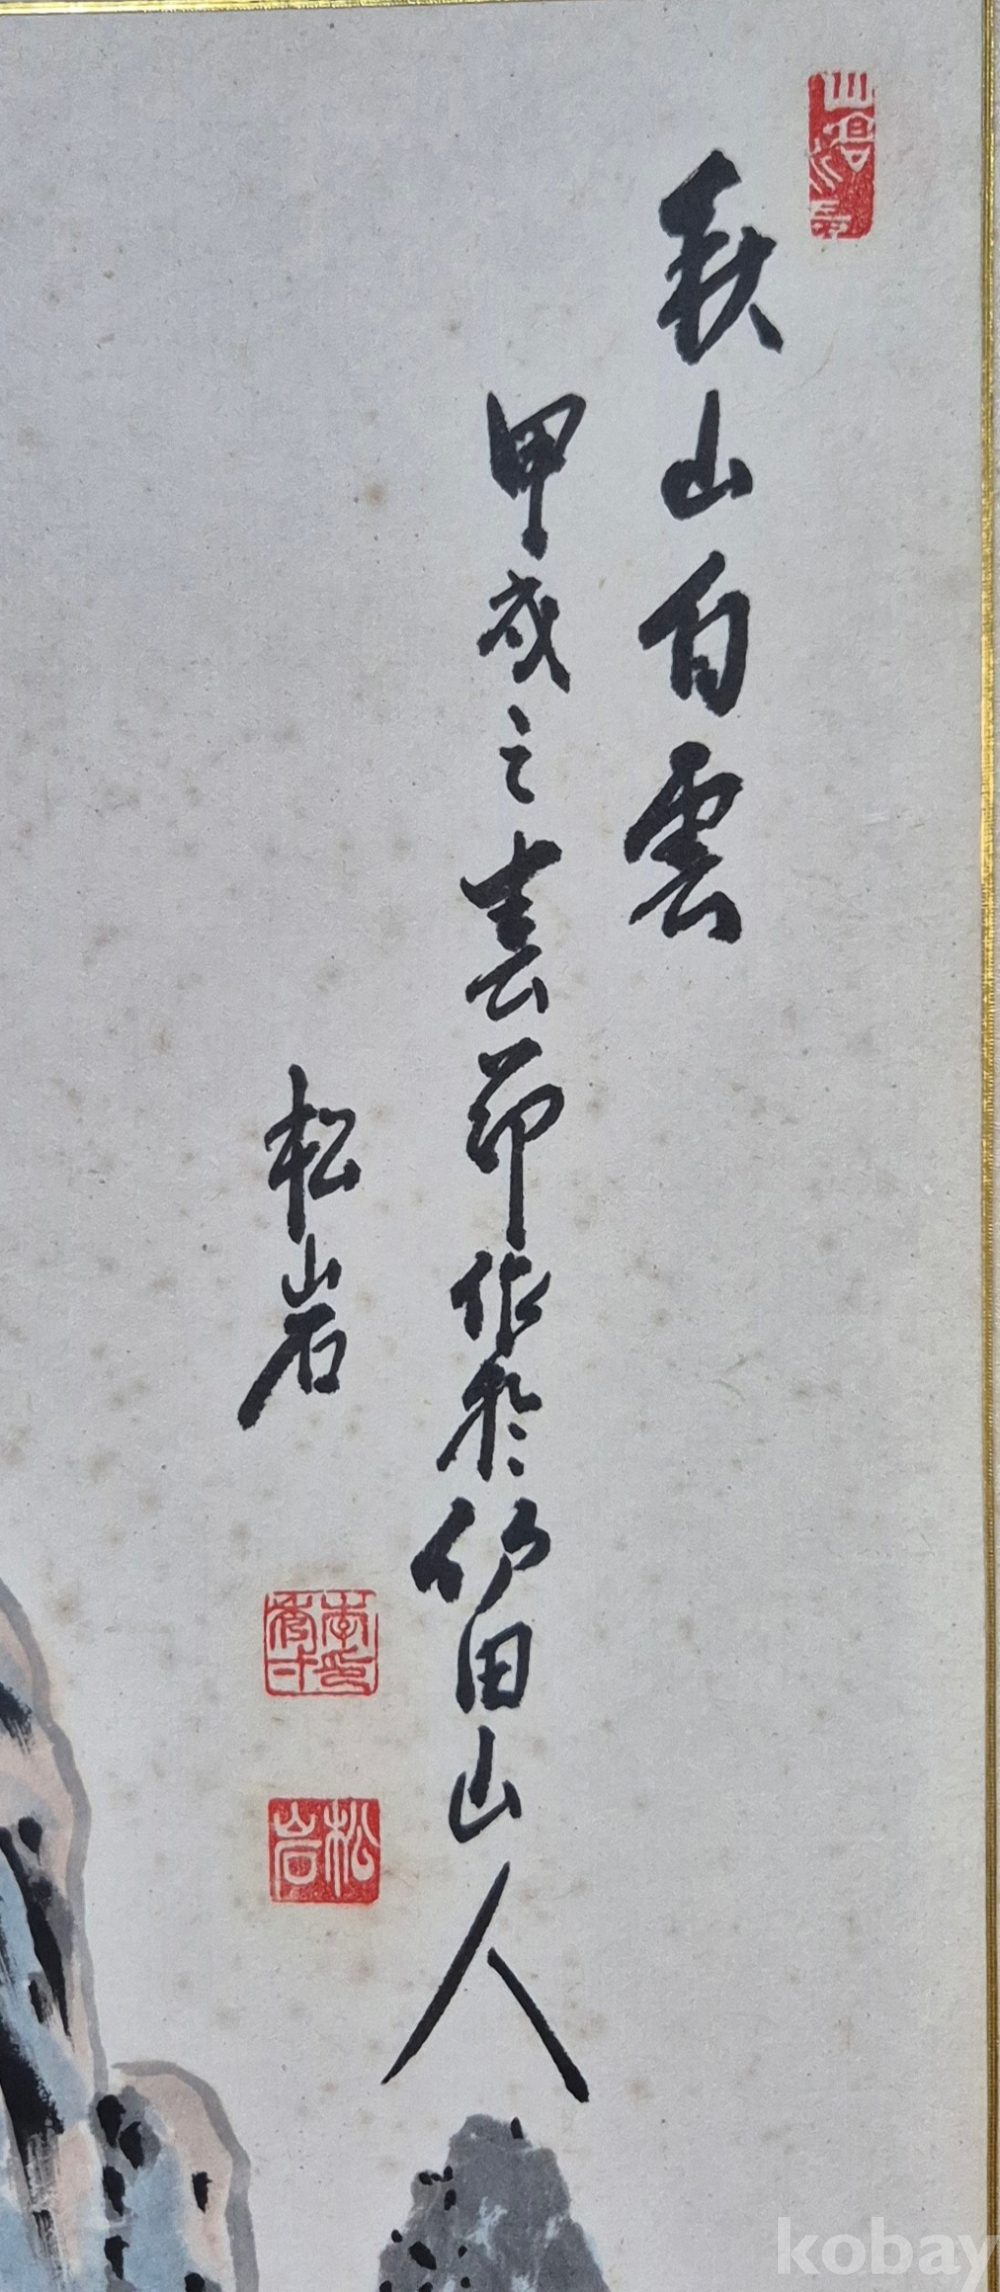 秋山白雲
甲戌之春節作於竹田山人
松岩
松岩
kobay